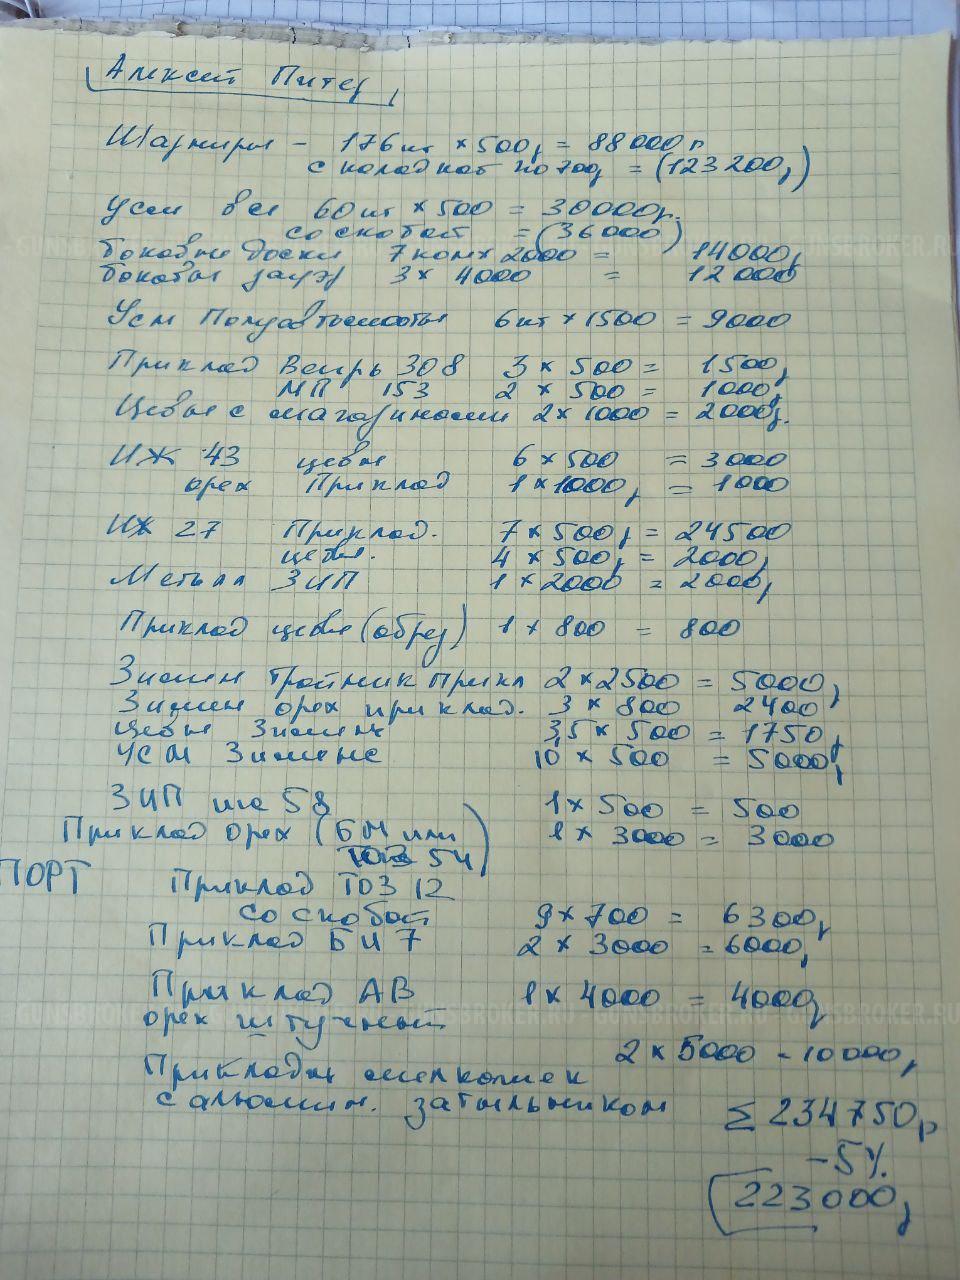 Алексей Питер
Шарниры - 176 шт × 500р = 88000р
с колодкой по 700р = (123200р)
Усм все 60 шт × 500 = 30000р.
со скобой = (36000)
боковые доски 7 ком × 2000 = 14000р
боковые зауэр 3 × 4000 = 12000
Усм Полуавтоматы 6 шт × 1500 = 9000
Приклад Вепрь 308 3 × 500 = 1500р
МП 153 2 × 500 = 1000р
Цевье с магазинами 2 × 1000 = 2000р.
ИЖ 43 цевье 6 × 500 = 3000
орех Приклад 1 × 1000р = 1000
ИЖ 27 Приклад. 7 × 500р = 24500
цевье. 4 × 500р = 2000р
Металл ЗИП 1 × 2000 = 2000р
Приклад цевье (обрез) 1 × 800 = 800
Зимсон Тройник прикл 2 × 2500 = 5000р
Зимсон орех приклад. 3 × 800 2400
цевье Зимсон 3,5 × 500 = 1750р
УСМ Зимсон 10 × 500 = 5000р
ЗИП иж 58 1 × 500 = 500
Приклад орех (БМ или 1 × 3000 = 3000
ТОЗ 54)
ПОРТ Приклад ТОЗ 12
со скобой 9 × 700 = 6300р
Приклад БИ 7 2 × 3000 = 6000р
Приклад АВ 1 × 4000 = 4000р
орех штучный
2 × 5000 - 10000р
Приклады мелкашек
с алюмин. затыльником Σ 234750р
-5%
223000р